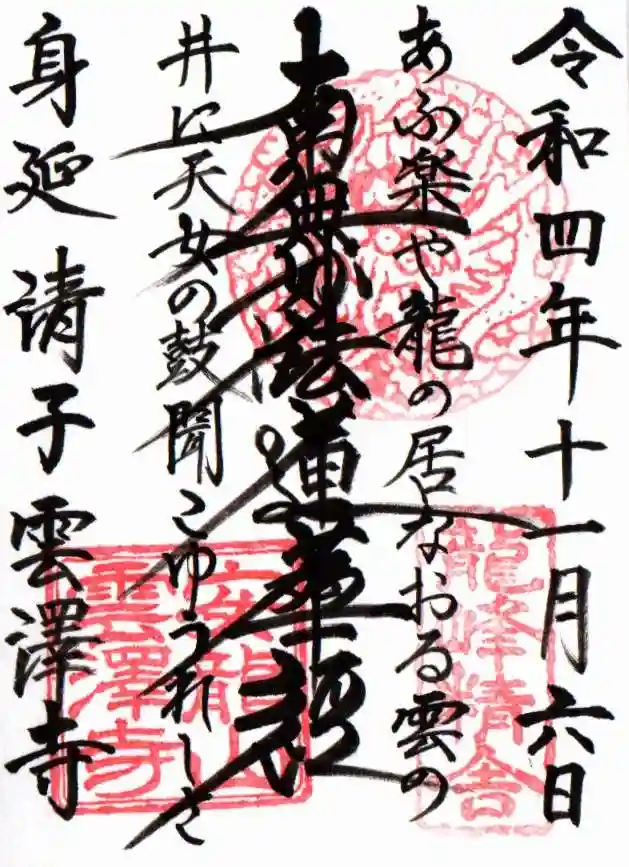 令和四年十一月六日
あふ楽や龍の居なおる雲の
南無妙法蓮華経
井に天女の鼓聞こゆうれしさ
身延 請子 雲澤寺
龍峰精舎
龍山
雲澤寺